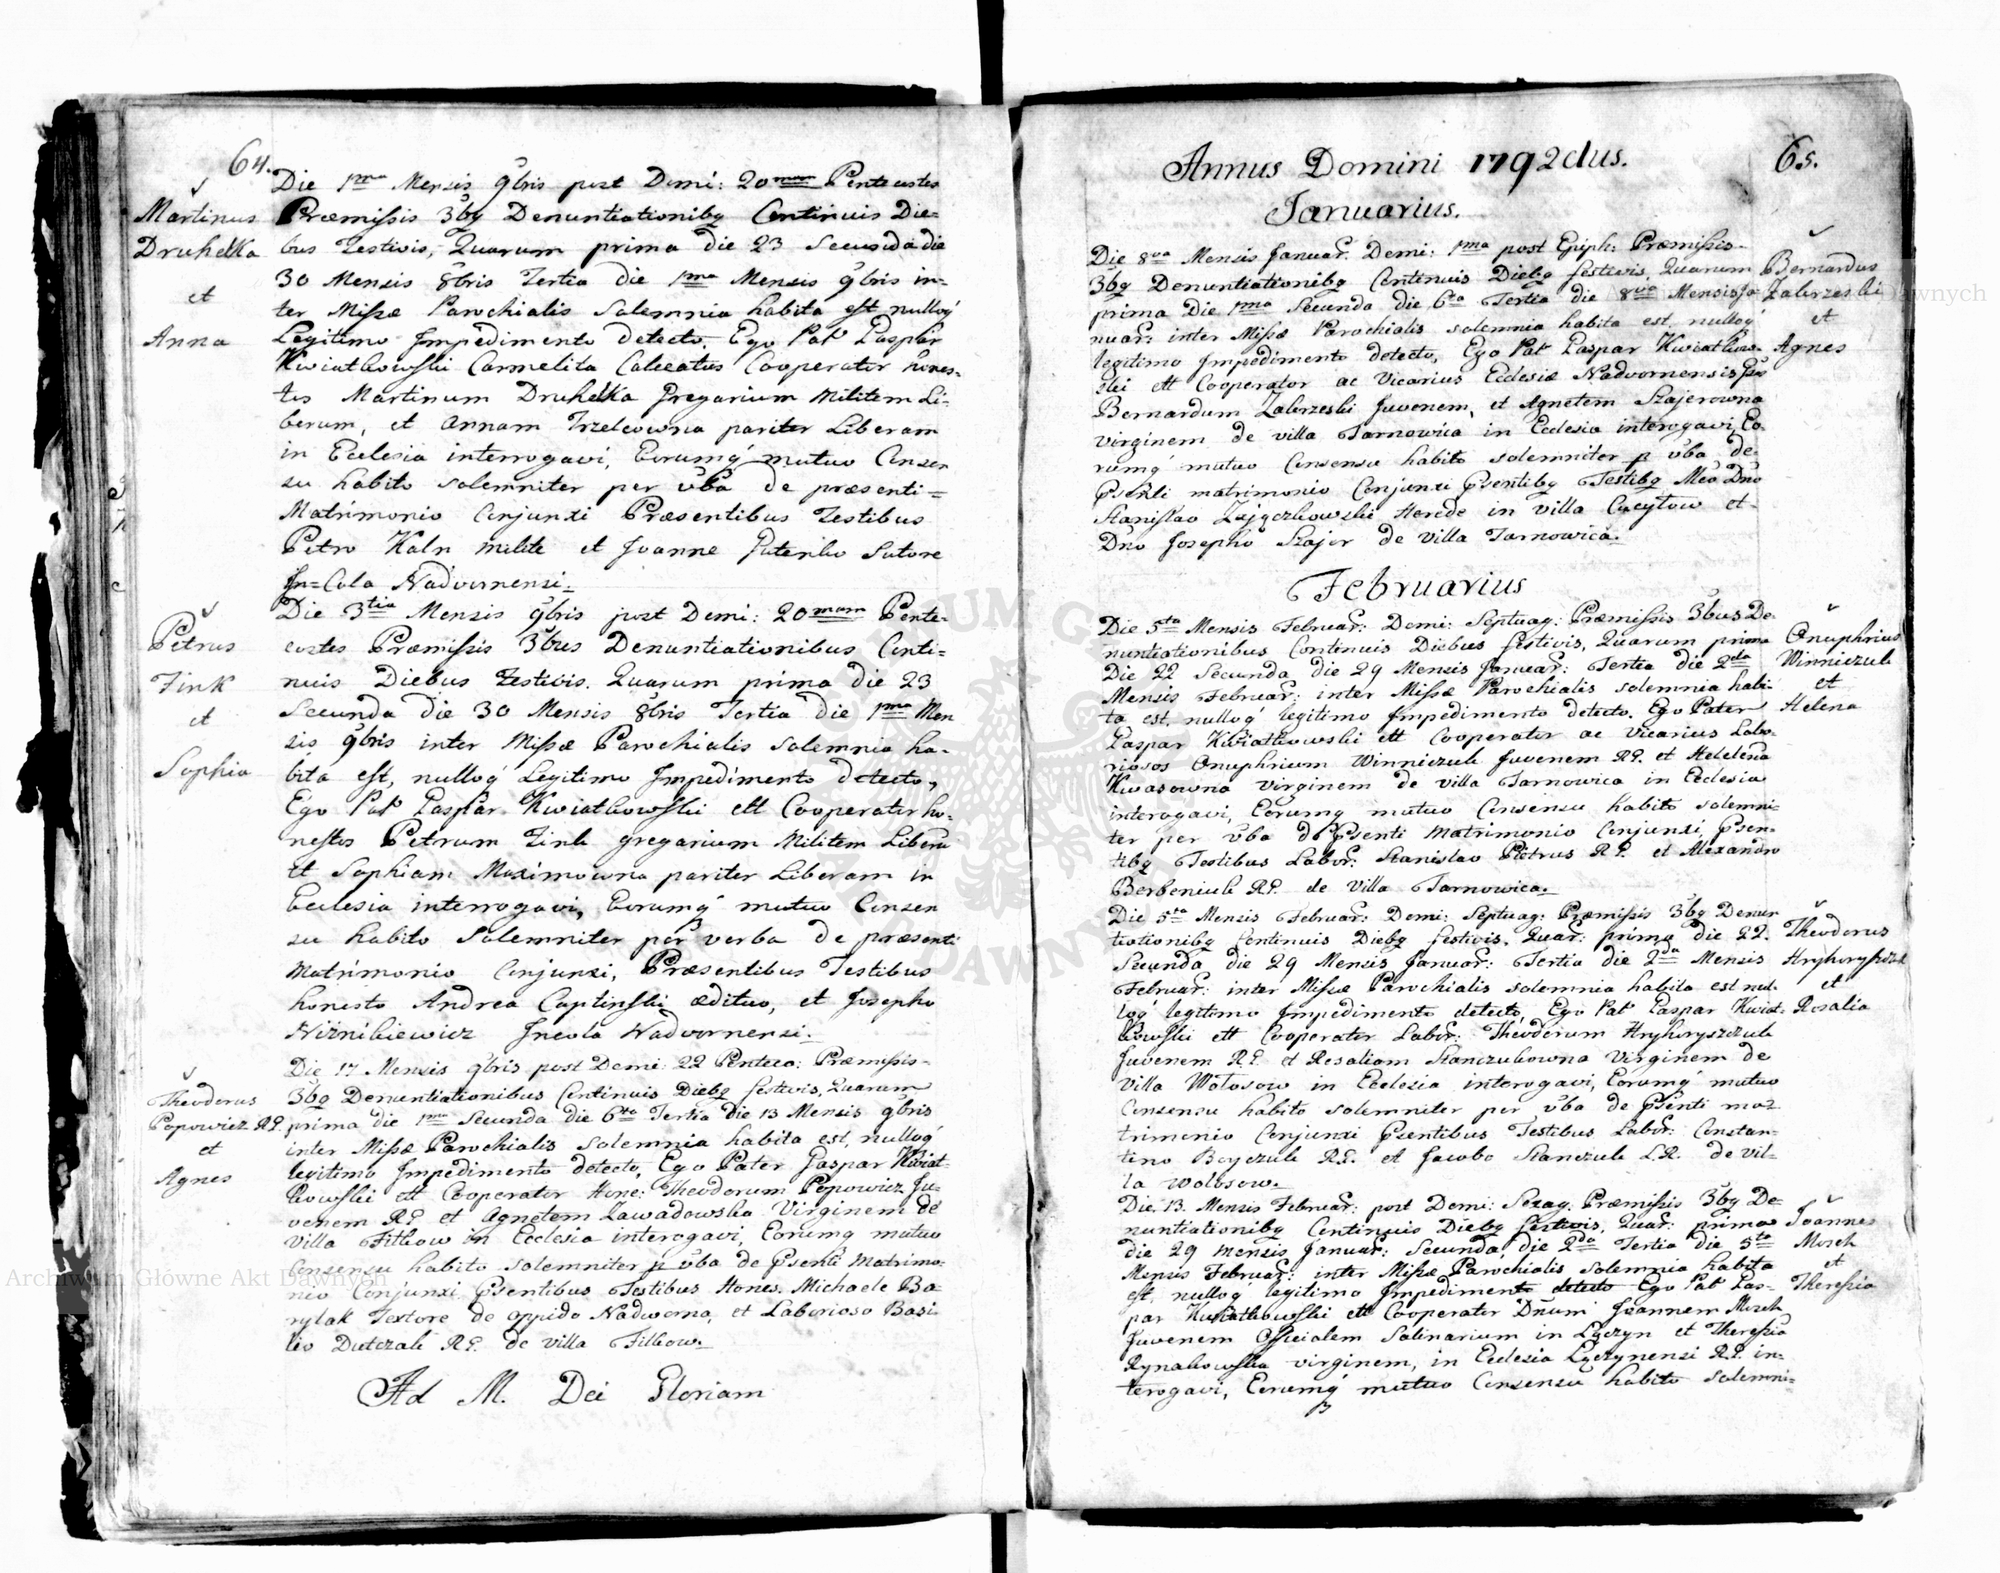 64.
Die 1ma Mensis 9bris post Domi: 20mam Pentecostes
Martinus
Præmissis 3bq Denuntiationibq Continuis Die=
Druhelka
bus Festivis, Quarum prima die 23 Secunda die
et
30 Mensis 8bris Tertia die 1ma Mensis 9bris in=
ter Missæ Parochialis Solemnia habita est nulloq́
Anna
Legitimo Impedimento detecto, Ego Pat Gaspar
Kwiatkowski Carmelita Calceatus Cooperator hones=
tos Martinum Druhelka Gregarium Militem Li=
berum, et Annam Trzelcowna pariter Liberam
in Ecclesia interrogavi, Eorumq́ mutuo Consen
su habito solemniter per vba de præsenti=
Matrimonio Conjunxi Præsentibus Testibus
Petro Kaln Milite et Joanne Sutore
In=Cola Nadvornensi.
Die 3tia Mensis 9bris post Domi: 20mam Pente=
Petrus
costes Præmissis 3bus Denuntiationibus Conti=
Fink
nuis Diebus Festivis. Quarum prima die 23
et
Secunda die 30 Mensis 8bris Tertia die 1ma Men
sis 9bris inter Missæ Parochialis Solemnia ha=
Sophia
bita est, nulloq́ Legitimo Impedimento detecto,
Ego Pat Gaspar Kwiatkowski ett Cooperator ho=
nestos Petrum Fink gregarium Militem Liberu
et Sophiam Maximowna pariter Liberam in
Ecclesia interrogavi, Eorumq́ mutuo Consen
su habito Solemniter per verba de præsenti
Matrimonio Conjunxi, Præsentibus Testibus
honesto Andrea Captinski ædituo, et Josepho
Niznikiewicz Incola Nadvornensi.
Die 17 Mensis 9bris post Domi: 22 Penteco: Præmissis=
Theodorus
3bq Denuntiationibus Continuis Diebq festivis, Quarum
Popowicz R.G.
prima die 1ma Secunda die 6ta Tertia die 13 Mensis 9bris
et
inter Missæ Parochialis Solemnia habita est, nulloq́
Agnes
legitimo Impedimento detecto, Ego Pater Gaspar Kwiat=
kowski ett Cooperator Hone: Theodorum Popowicz Ju=
venem R.G. et Agnetem Zawadowska Virginem de
villa Fitkow in Ecclesia interogavi, Eorumq mutuo
Consensu habito solemniter p vba de Psenti Matrimo=
nio Conjunxi Psentibus Testibus Hones: Michaele Ba=
rylak Textore de oppido Nadworna, et Laborioso Basi
lio Dutczak R.G. de villa Fitkow.
Ad M. Dei Gloriam
Annus Domini 1792dus.
65.
Januarius.
Die 8va Mensis Januar: Domi: 1ma post Epiph: Præmissis=
3bq Denuntiationibq Continuis Diebq festivis, Quarum
Bernardus
prima Die 1ma Secunda die 6ta Tertia die 8va Mensis Ja=
Zakrzeski
nuar: inter Missæ Parochialis solemnia habita est, nulloq́
et
legitimo Impedimento detecto, Ego Pat Gaspar Kwiatkow=
Agnes
ski ett Cooperator ac Vicarius Ecclesiæ Nadvornensis
Bernardum Zakrzeski Juvenem, et Agnetem Szajerowna
virginem de villa Tarnowica in Ecclesia interogavi, Eo=
rumq́ mutuo Consensu habito solemniter p vba de
Psenti matrimonio Conjunxi Psentibq Testibq Mco Dno
Stanislao Zajączkowski Herede in villa Cucylow et=
Dno Josepho Szajer de villa Tarnowica.
Februarius
Die 5ta Mensis Februar: Domi: Septuag: Præmissis 3bus De=
nuntiationibus Continuis Diebus festivis, Quarum prima
Onuphrius
Die 22 Secunda die 29 Mensis Januar: Tertia die 2da
Winniczuk
Mensis Februar: inter Missæ Parochialis solemnia habi=
et
ta est, nulloq́ legitimo Impedimento detecto. Ego Pater
Helena
Gaspar Kwiatkowski ett Cooperator ac Vicarius Labo=
riosos Onuphrium Winniczuk Juvenem R.G. et Helelena
Kwasowna virginem de villa Tarnowica in Ecclesia
interogavi, Eorumq mutuo Consensu habito solemni=
ter per vba de Psenti Matrimonio Conjunxi, Psen=
tibq Testibus Labor: Stanislao Pietrus R.G. et Alexandro
Berbeniuk R.G. de villa Tarnowica.
Die 5ta Mensis Februar: Domi: Septuag: Præmissis 3bq Denun
tiationibq Continuis Diebq festivis, Quar: prima die 22.
Theodorus
Secunda die 29 Mensis Januar: Tertia die 2da Mensis
Hryhoryszczuk
Februar: inter Missæ Parochialis solemnia habita est nul=
et
loq́ legitimo Impedimento detecto, Ego Pat Gaspar Kwiat=
Rosalia
kowski ett Cooperator Labor: Theodorum Hryhoryszczuk
Juvenem R.G. et Rosaliam Stanczukowna Virginem de
Villa Wolosow in Ecclesia interogavi, Eorumq́ mutuo
Consensu habito solemniter per vba de Psenti ma=
trimonio Conjunxi Psentibus Testibus Labor: Constan=
tino Boyczuk R.G. et Jacobo Stanczuk L.R. de vil=
la Wolosow.
Die 13. Mensis Februar: post Domi: Sexag: Præmissis 3bq De=
nuntiationibq Continuis Diebq festivis, Quar: prima
Joannes
die 29 Mensis Januar: Secunda, die 2da Tertia die 5ta
Mosch
Mensis Februar: inter Missæ Parochialis solemnia habita
et
est, nulloq́ legitimo Impedimento detecto Ego Pat Gas=
Theressia
par Kwiatkowski ett Cooperator Dnum Joannem Mosch
Juvenem Officialem Salinarium in Łączyn et Theressia
Rynakowska virginem, in Ecclesia Łączynensi R.G. in=
terogavi, Eorumq́ mutuo Consensu habito solemni=
Archiwum Główne Akt Dawnych